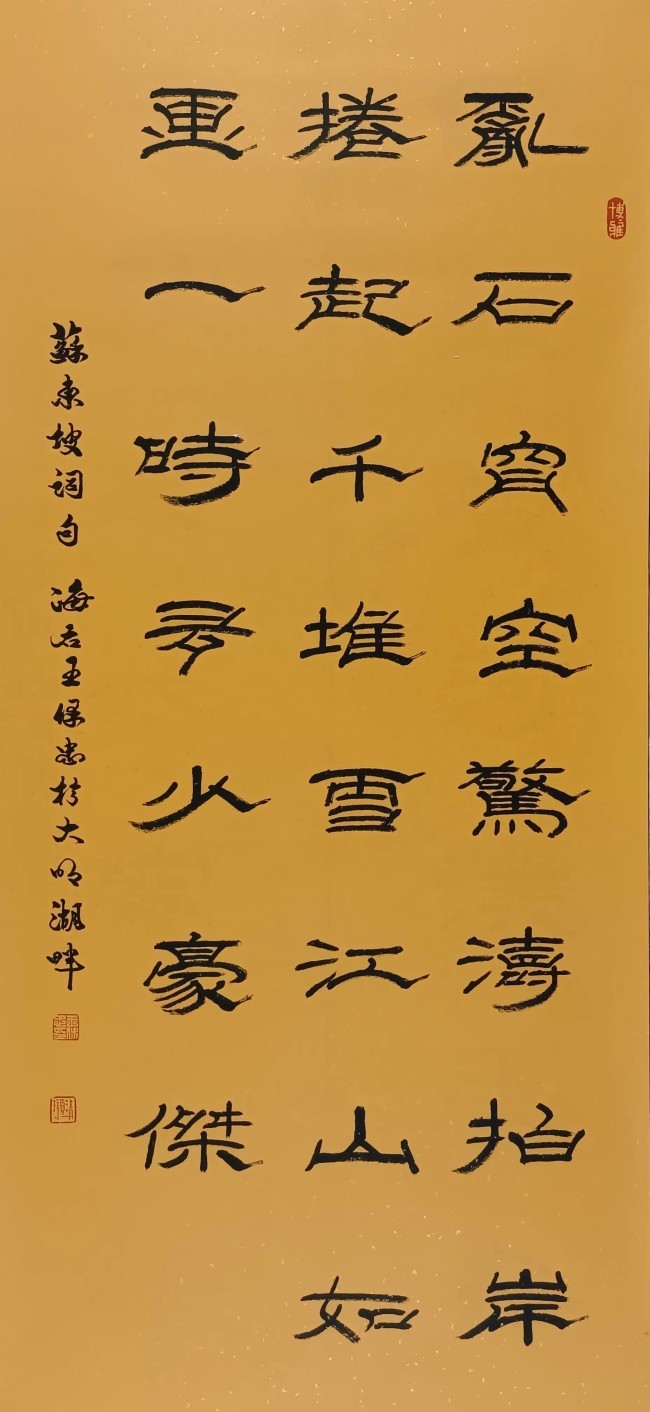 博雅
亂石穿空驚濤拍岸
捲起千堆雪江山如
畫一時多少豪傑
蘇東坡詞句 海右王保忠於大明湖畔